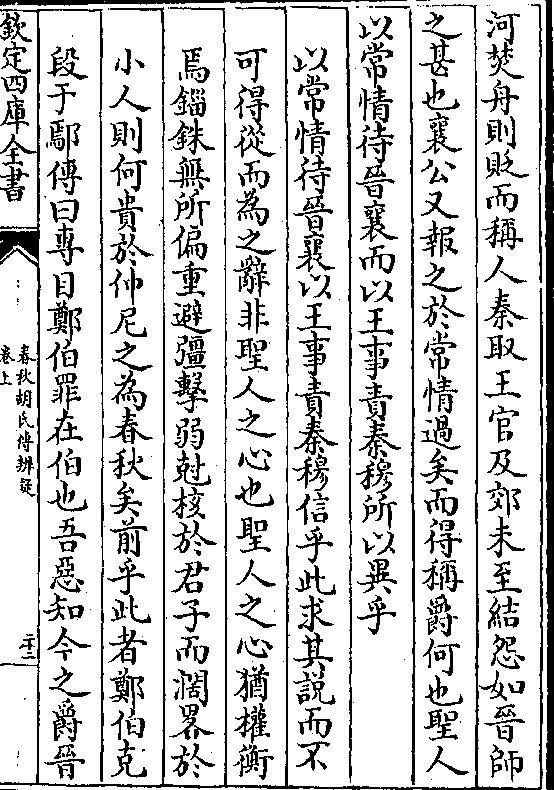 河焚舟則貶而稱人秦取王官及郊未至結怨如晉師
之甚也襄公又報之於常情過矣而得稱爵何也聖人
以常情待晉襄而以王事責秦穆所以異乎
以常情待晉襄以王事責秦穆信乎此求其説而不
可得從而為之辭非聖人之心也聖人之心猶權衡
焉錙銖無所偏重避彊擊弱尅核於君子而濶畧於
小人則何貴於仲尼之為春秋矣前乎此者鄭伯克
段于鄢傳曰專目鄭伯罪在伯也吾惡知今之爵晉
欽定四庫全書
春秋胡氏傳辨疑
卷上
二十二